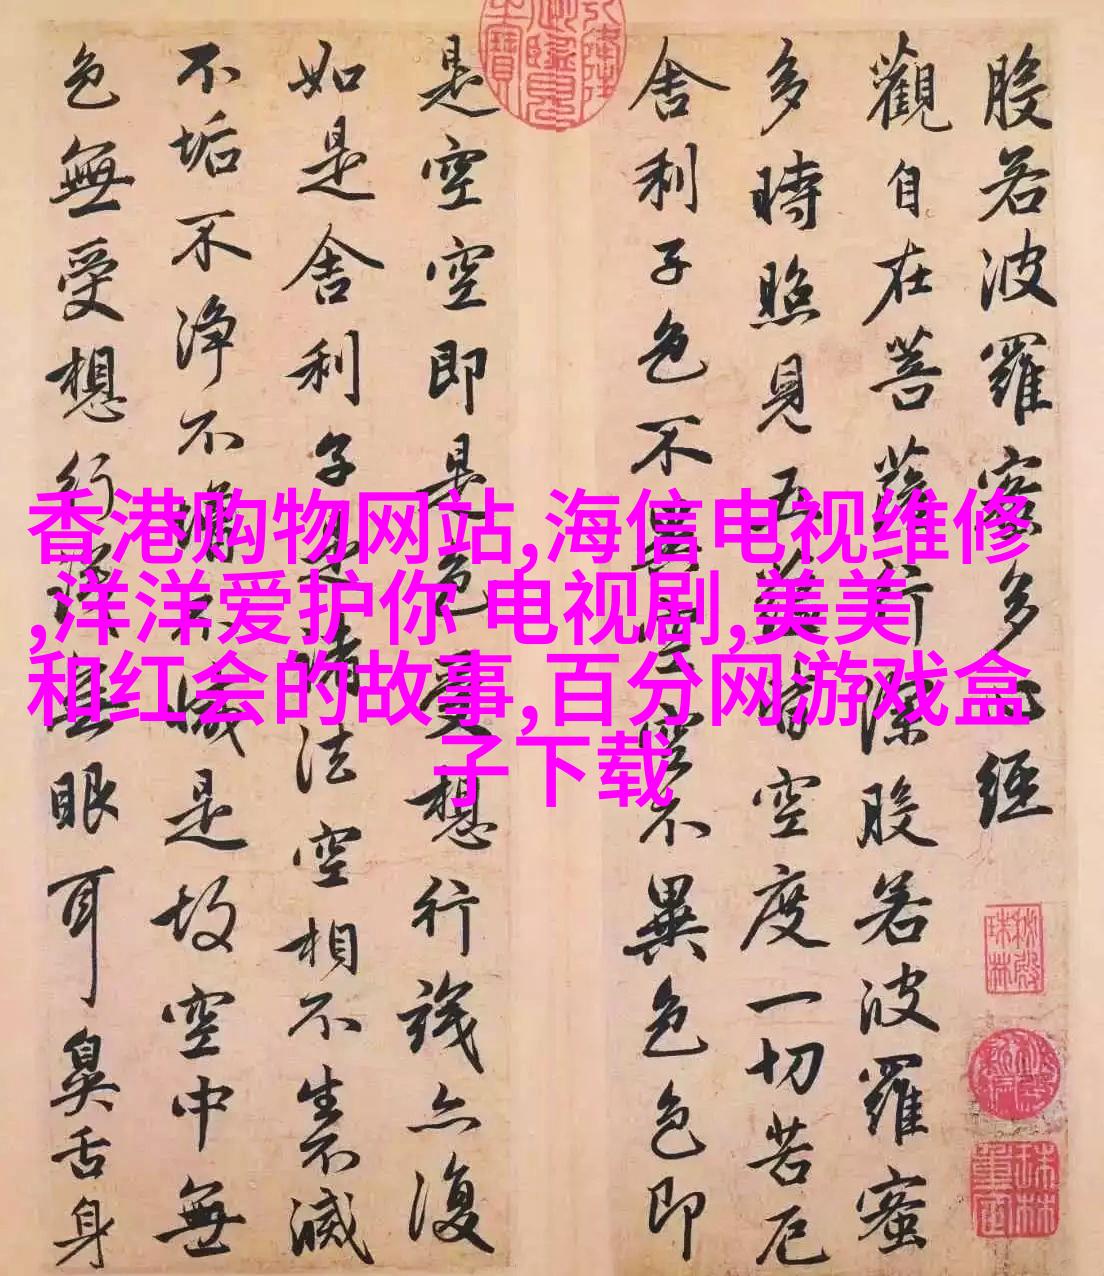 般若波羅密多心經
觀自在菩薩行深般若波羅蜜
多時照見五蘊皆空度一切苦厄
舍利子色不異空空不異色色即
是空空即是色受想行識亦復
如是舍利子是諸法空相不生不滅
不垢不净不增不減是故空中無
色無受想行識無眼耳鼻舌身
香港购物网站,海信电视维修
,洋洋爱护你 电视剧,美美
和红会的故事,百分网游戏盒
子下载